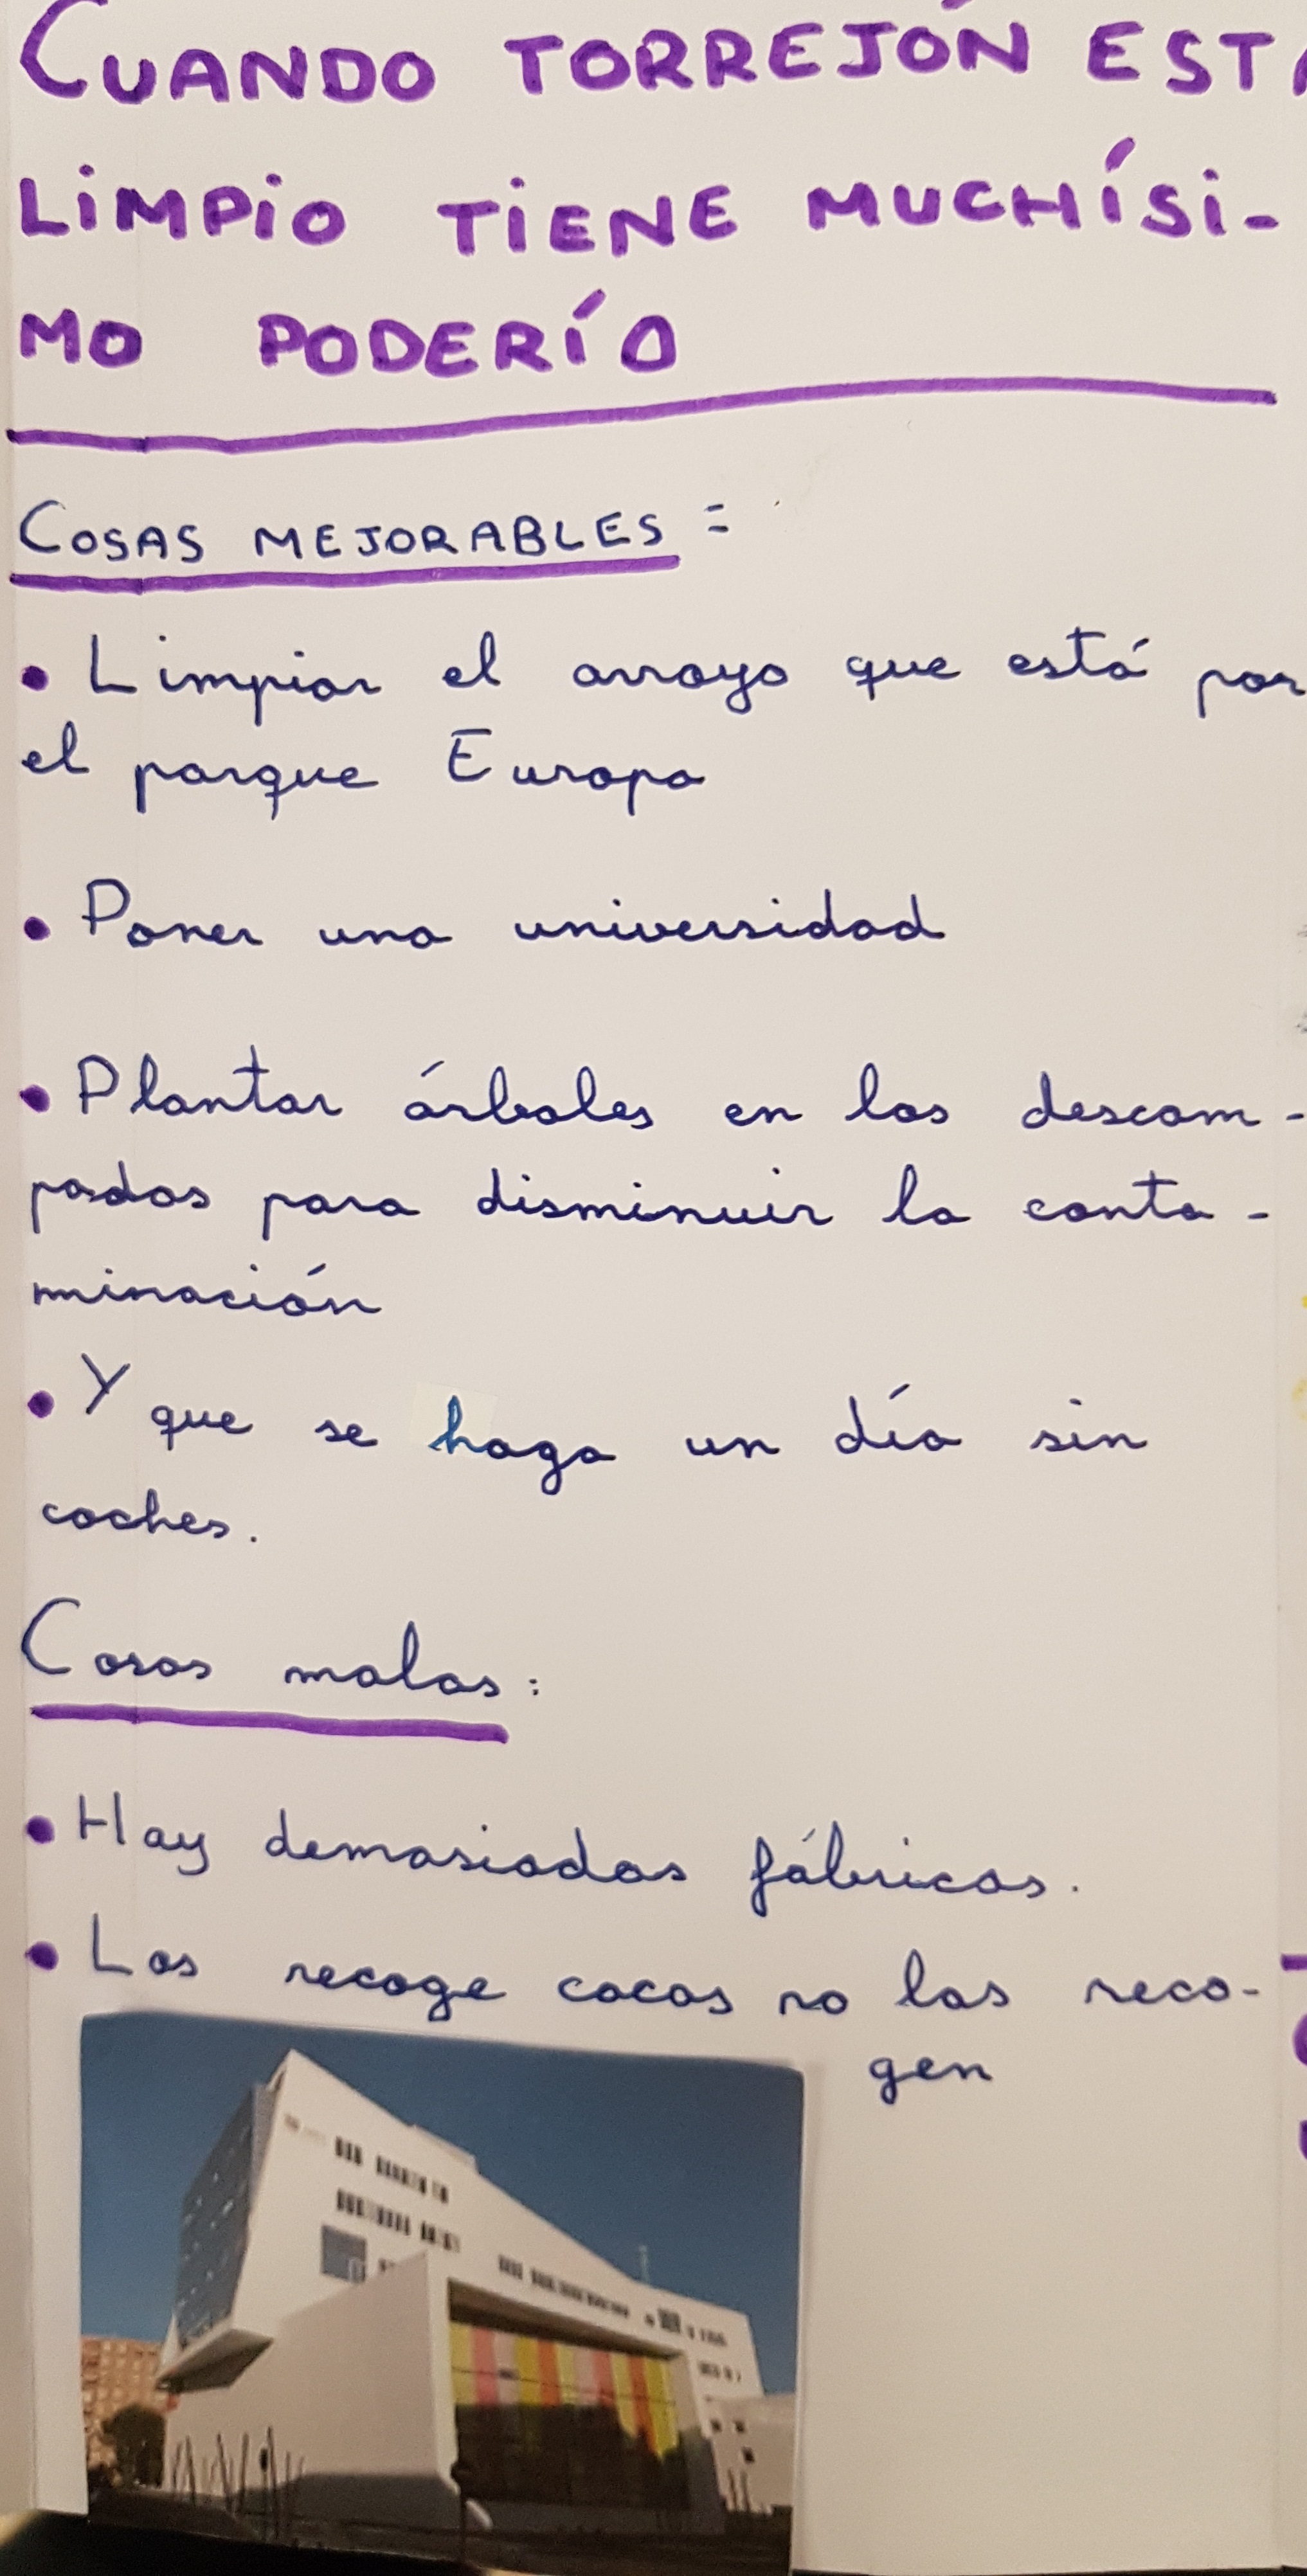 CUANDO TORREJÓN ESTÁ
LIMPIO TIENE MUCHÍSI-
MO PODERÍO
COSAS MEJORABLES:
• Limpiar el arroyo que está por
el parque Europa
• Poner una universidad
• Plantar árboles en los descam-
pados para disminuir la conta-
minación
• Y que se haga un día sin
coches.
Cosas malas:
• Hay demasiadas fábricas.
• Los recoge cacas no las reco-
gen